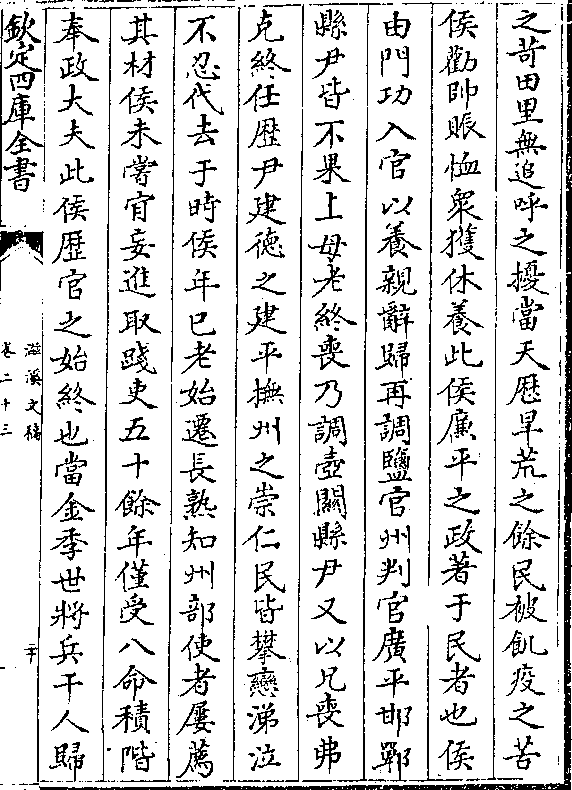 之苛田里無追呼之擾當天歴旱荒之餘民被飢疫之苦
侯勸帥賑恤衆獲休養此侯廉平之政著于民者也侯
由門功入官以養親辭歸再調鹽官州判官廣平邯鄲
縣尹皆不果上母老終喪乃調壺關縣尹又以兄喪弗
克終任歴尹建德之建平撫州之崇仁民皆攀戀涕泣
不忍代去于時侯年已老始遷長熟知州部使者屢薦
其材侯未嘗肯妄進取踐吏五十餘年僅受八命積階
奉政大夫此侯歴官之始終也當金季世將兵千人歸
欽定四庫全書
滋溪文稿
卷二十三